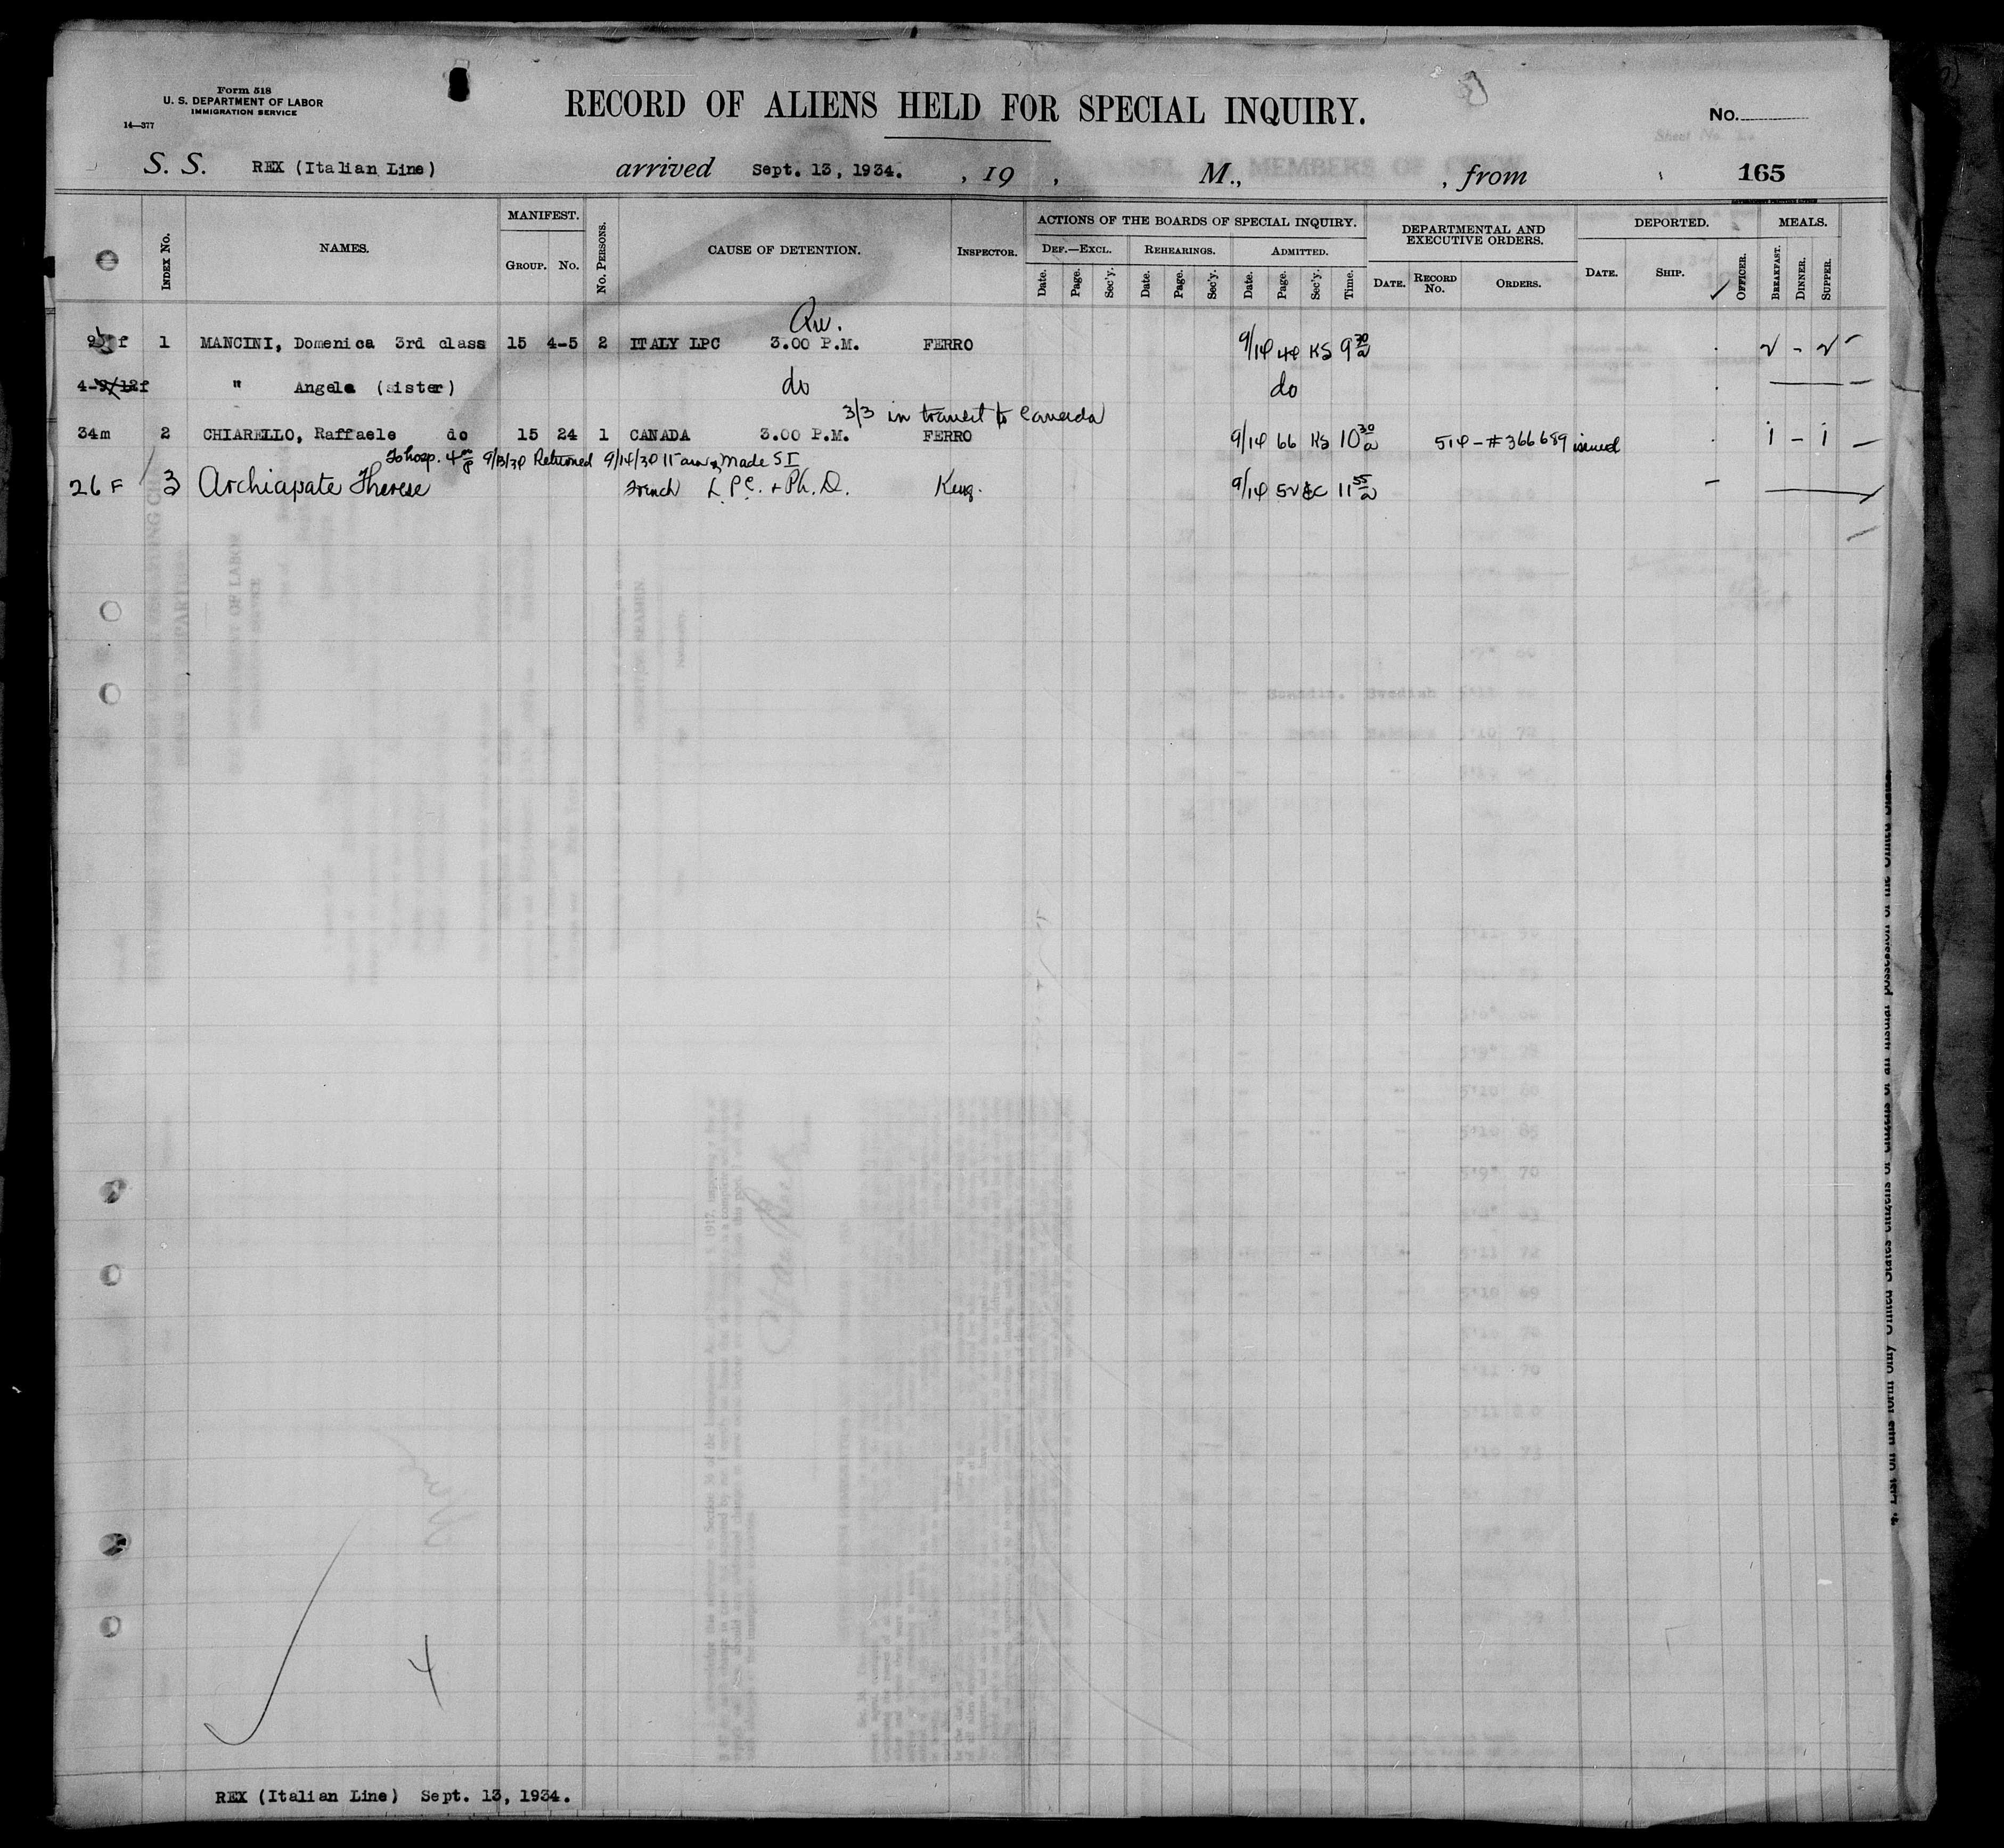 Form 518
U. S. DEPARTMENT OF LABOR
IMMIGRATION SERVICE
14—377
RECORD OF ALIENS HELD FOR SPECIAL INQUIRY.
No.
S. S. REX (Italian Line) arrived Sept. 13, 1934. , 19 , M., , from 165
INDEX No. NAMES. MANIFEST. GROUP. No. No. PERSONS. CAUSE OF DETENTION. INSPECTOR. ACTIONS OF THE BOARDS OF SPECIAL INQUIRY. DEF.—EXCL. Date. Page. Sec'y. REHEARINGS. Date. Page. Sec'y. ADMITTED. Date. Page. Sec'y. Time. DEPARTMENTAL AND EXECUTIVE ORDERS. DATE. RECORD No. ORDERS. DEPORTED. DATE. SHIP. OFFICER. MEALS. BREAKFAST. DINNER. SUPPER.
f 1 MANCINI, Domenica 3rd class 15 4-5 2 ITALY LPC 3.00 P.M. FERRO 9/14 KS 9 30/a 2 - 2 -
" Angela (sister) do do
3/3 in transit to Canada
34m 2 CHIARELLO, Raffaele do 15 24 1 CANADA 3.00 P.M. FERRO 9/14 66 KS 10 30/a 514-#366689 issued 1 - 1 -
To hosp. Returned 11 am Made SI
26 F 3 Archiapate Therese French L.P.C. + Ph. D. 9/14 11 55/a
4
REX (Italian Line) Sept. 13, 1934.